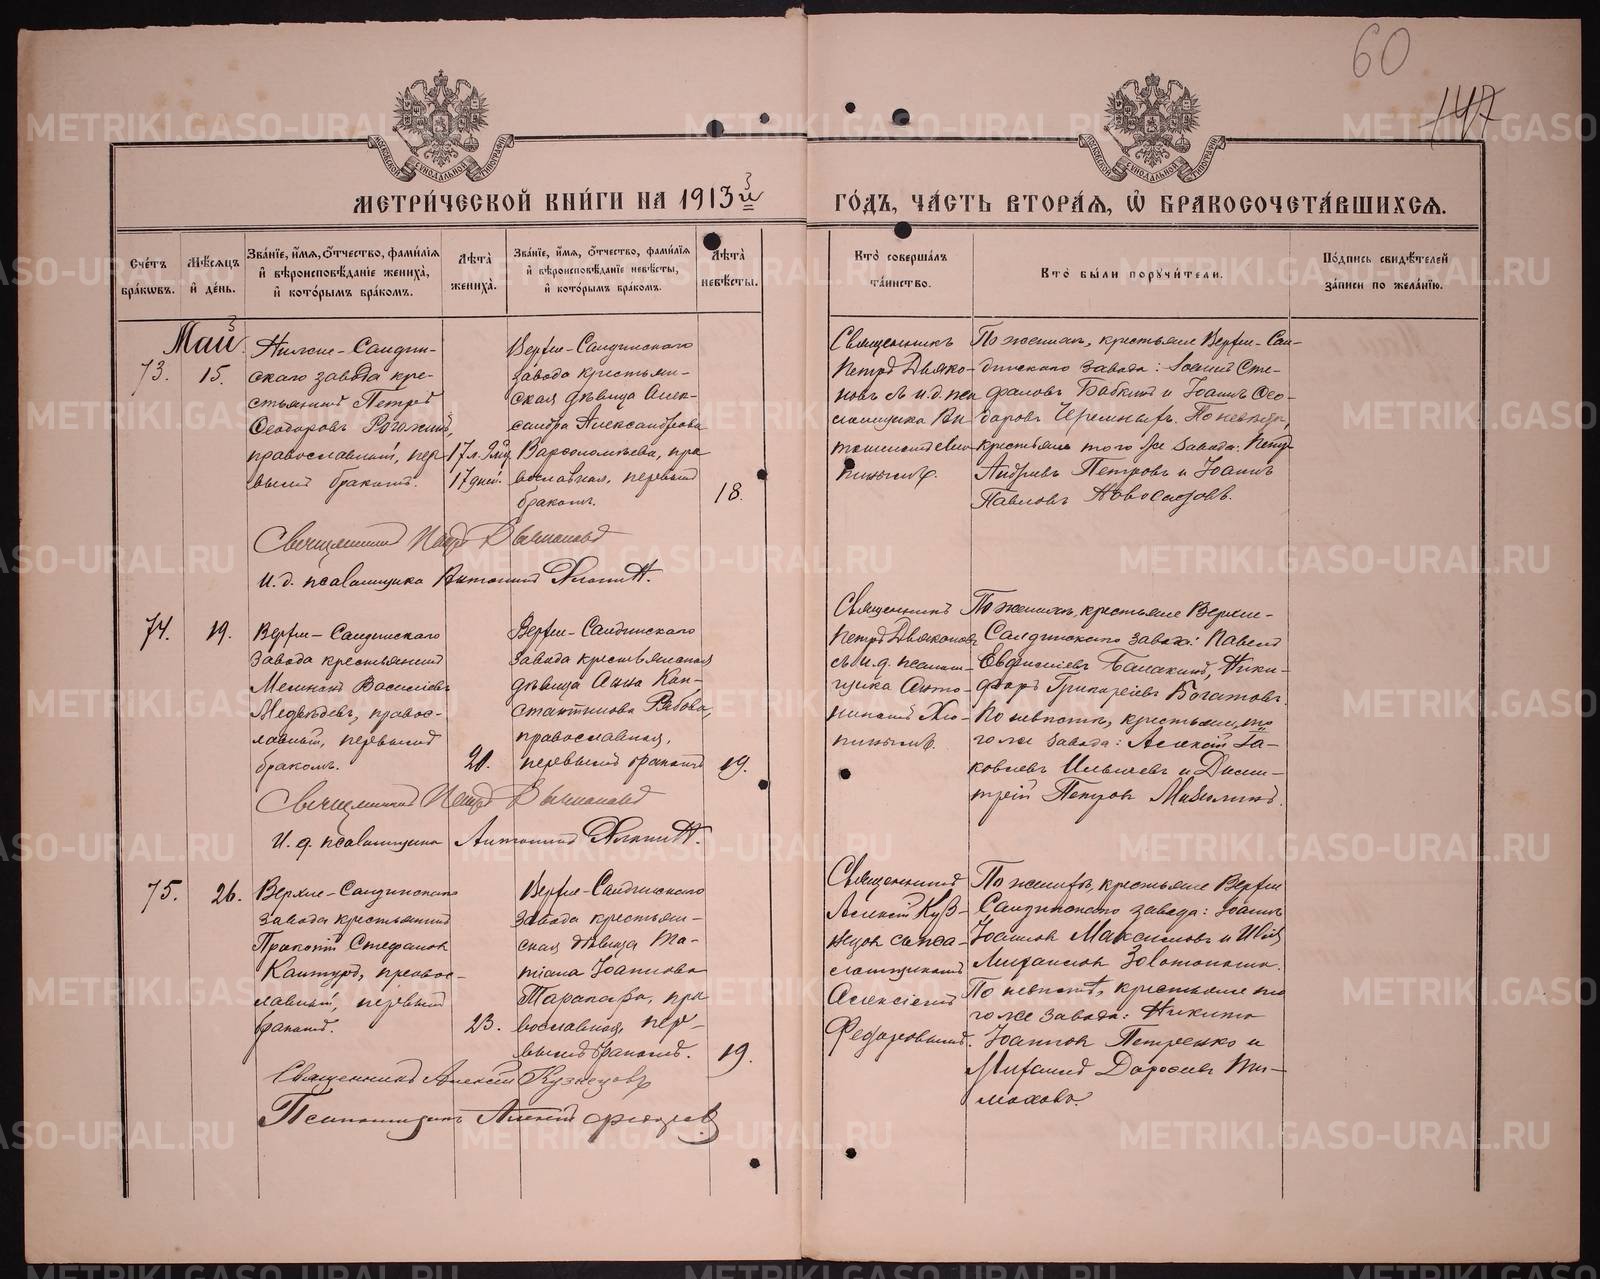 60
147
МОСКОВСКОЙ СѴНОДАЛЬНОЙ ТИПОГРАФІИ
МОСКОВСКОЙ СѴНОДАЛЬНОЙ ТИПОГРАФІИ
МЕТРИ́ЧЕСКОЙ КНИ́ГИ НА 1913й
ГО́ДЪ, ЧА́СТЬ ВТОРА́Я, Ѿ БРАКОСОЧЕТА́ВШИХСЯ.
Сче́тъ бра́кѡвъ.
Мѣ́сяцъ и де́нь.
Зва́нїе, и́мя, о́тчество, фамилїя и вѣроисповѣ́данїе жениха̀, и кото́рымъ бра́комъ.
Лѣ́та жениха̀.
Зва́нїе, и́мя, о́тчество, фами́лїя и вѣроисповѣ́данїе невѣ́сты, и кото́рымъ бра́комъ.
Лѣ́та невѣ́сты.
Кто̀ соверша́лъ та́инство.
Кто̀ бы́ли порꙋчи́тели.
По́дпись свидѣ́телей за́писи по жела́нїю.
Май
73.
15.
Нижне-Салдин-
скаго завода кре-
стьянинъ Петръ
Ѳеодоровъ
православный, пер-
вымъ бракомъ.
17 л.
17 дней.
Верхне-Салдинскаго
завода крестьян-
ская дѣвица Алек-
сандра Александрова
Варѳоломѣева, пра
вославная, первымъ
бракомъ.
18.
Священникъ
Петръ Дьяко-
новъ съ и.д. пса
ломщика Ан
тониномъ
По женихѣ, крестьяне Верхне-Сал-
динскаго завода: Сте-
фановъ Бабкинъ и Іоаннъ Ѳео-
доровъ По невѣстѣ,
крестьяне того же завода:
Андреевъ Петровъ и Іоаннъ
Павловъ Новоселовъ.
Священникъ Петръ Дьяконовъ
И. д. псаломщика Антонинъ
74.
19.
Верхне-Салдинскаго
завода крестьянинъ
Василіевъ
Медвѣдевъ, правос-
лавный, первымъ
бракомъ.
Верхне-Салдинскаго
завода крестьянская
дѣвица Анна Кон-
стантинова Рябова,
православная,
первымъ бракомъ
19.
Священникъ
Петръ Дьяконовъ
съ и.д. псалом-
щика Анто-
ниномъ
По женихѣ, крестьяне Верхне-
Салдинскаго завода: Павелъ
Евфиміевъ Балакинъ, Ники-
форъ Григоріевъ Богатовъ
По невѣстѣ, крестьяне, то
го же завода: Алексій Іа-
ковлевъ и Дими-
трій Петровъ
Священникъ Петръ Дьяконовъ
И. д. псаломщика Антонинъ
75.
26.
Верхне-Салдинскаго
завода крестьянинъ
Прокопій Стефановъ
правос-
лавный, первымъ
бракомъ.
23.
Верхне-Салдинскаго
завода крестьян-
ская дѣвица Та-
тіана Іоаннова
пра
вославная, пер-
вымъ бракомъ.
19.
Священникъ
Алексій Куз-
нецовъ съ пса-
ломщикомъ
Алексіемъ
По женихѣ, крестьяне Верхне
Салдинскаго завода: Іоаннъ
Іоанновъ Максимовъ и Илія
Михаиловъ
По невѣстѣ, крестьяне то
го же завода: Никита
Іоанновъ Петренко и
Михаилъ Дороѳеевъ Ти-
моховъ.
Священникъ Алексій Кузнецовъ
Псаломщикъ Алексій
METRIKI.GASO-URAL.RU